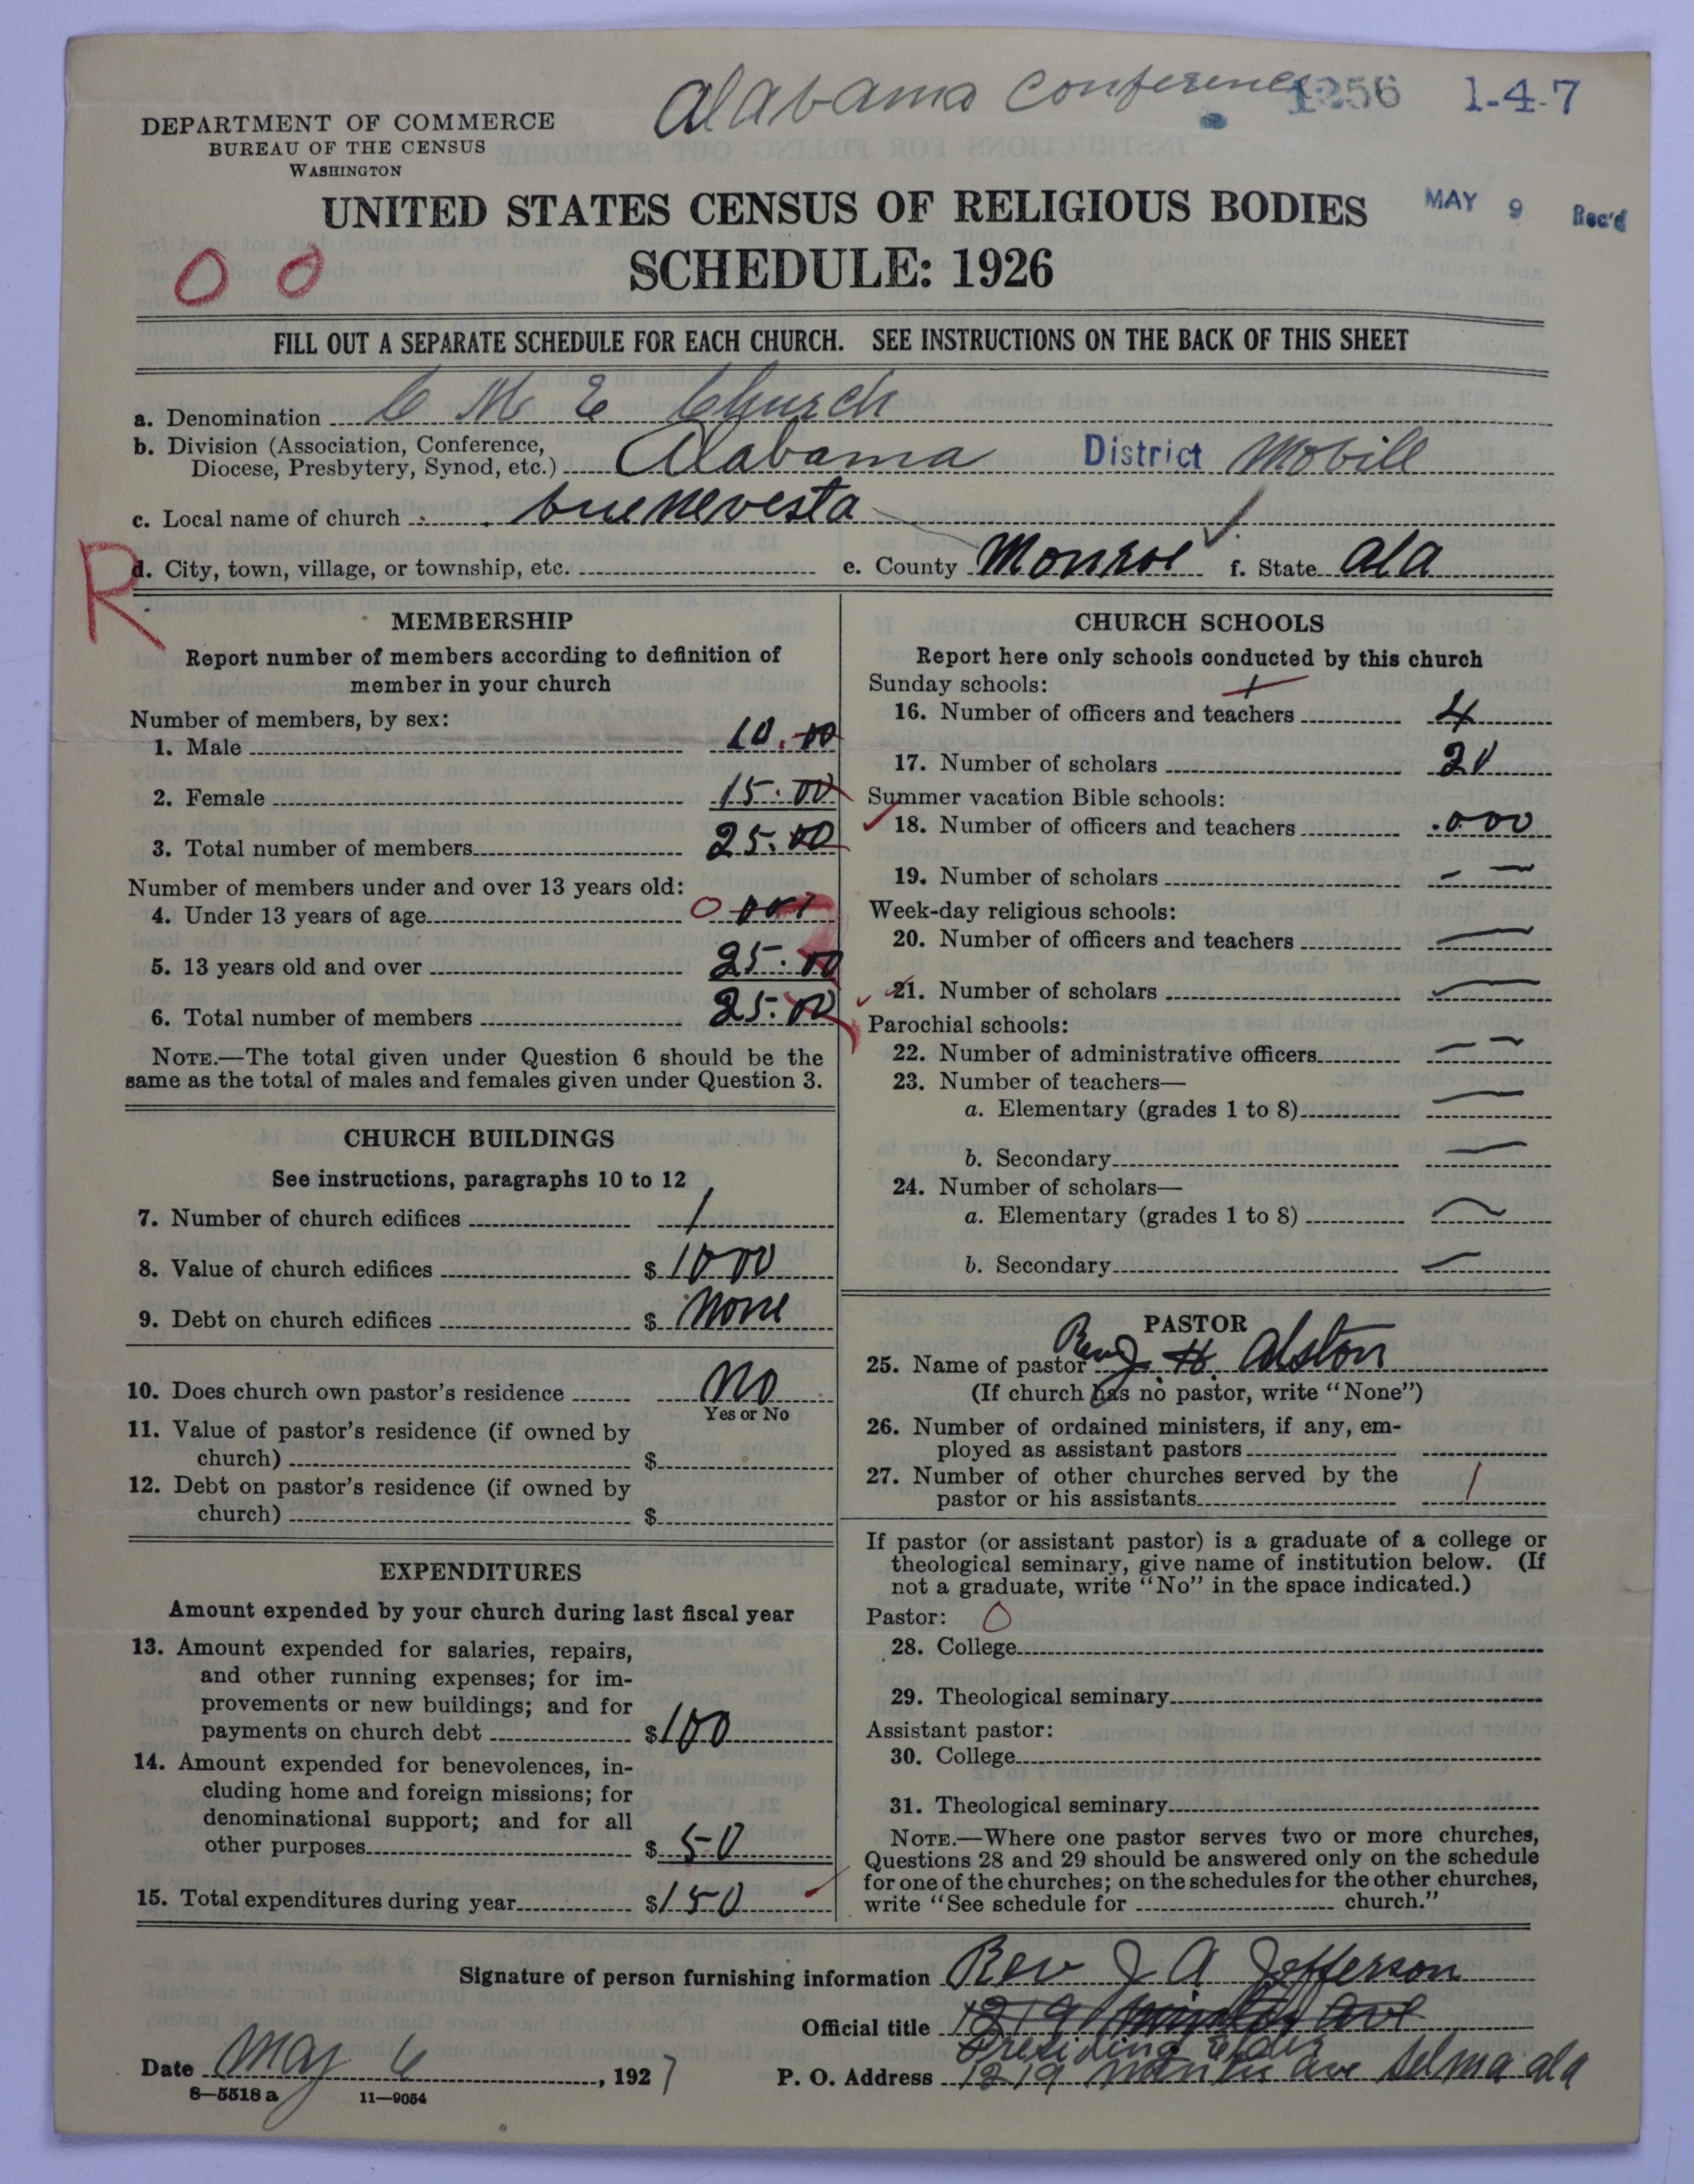 Alabama Conference 1256 1-4-7
DEPARTMENT OF COMMERCE
BUREAU OF THE CENSUS
WASHINGTON
UNITED STATES CENSUS OF RELIGIOUS BODIES
MAY 9 Rec'd
SCHEDULE: 1926
0 0
FILL OUT A SEPARATE SCHEDULE FOR EACH CHURCH. SEE INSTRUCTIONS ON THE BACK OF THIS SHEET
a. Denomination C M E Church
b. Division (Association, Conference,
Diocese, Presbytery, Synod, etc.) Alabama District Mobill
c. Local name of church buenevesta
R
d. City, town, village, or township, etc. e. County Monroe f. State Ala
MEMBERSHIP
Report number of members according to definition of
member in your church
Number of members, by sex:
1. Male 10.00
2. Female 15.00
3. Total number of members 25.00
Number of members under and over 13 years old:
4. Under 13 years of age 0
5. 13 years old and over 25.00
6. Total number of members 25.00
NOTE.—The total given under Question 6 should be the
same as the total of males and females given under Question 3.
CHURCH BUILDINGS
See instructions, paragraphs 10 to 12
7. Number of church edifices 1
8. Value of church edifices $ 1000
9. Debt on church edifices $ None
10. Does church own pastor's residence No
Yes or No
11. Value of pastor's residence (if owned by
church) $
12. Debt on pastor's residence (if owned by
church) $
EXPENDITURES
Amount expended by your church during last fiscal year
13. Amount expended for salaries, repairs,
and other running expenses; for im-
provements or new buildings; and for
payments on church debt $ 100
14. Amount expended for benevolences, in-
cluding home and foreign missions; for
denominational support; and for all
other purposes $ 50
15. Total expenditures during year $ 150
CHURCH SCHOOLS
Report here only schools conducted by this church
Sunday schools:
16. Number of officers and teachers 4
17. Number of scholars 20
Summer vacation Bible schools:
18. Number of officers and teachers .000
19. Number of scholars
Week-day religious schools:
20. Number of officers and teachers
21. Number of scholars
Parochial schools:
22. Number of administrative officers
23. Number of teachers—
a. Elementary (grades 1 to 8)
b. Secondary
24. Number of scholars—
a. Elementary (grades 1 to 8)
b. Secondary
PASTOR
25. Name of pastor Benj. H. Alston
(If church has no pastor, write "None")
26. Number of ordained ministers, if any, em-
ployed as assistant pastors
27. Number of other churches served by the
pastor or his assistants 1
If pastor (or assistant pastor) is a graduate of a college or
theological seminary, give name of institution below. (If
not a graduate, write "No" in the space indicated.)
Pastor: 0
28. College
29. Theological seminary
Assistant pastor:
30. College
31. Theological seminary
NOTE.—Where one pastor serves two or more churches,
Questions 28 and 29 should be answered only on the schedule
for one of the churches; on the schedules for the other churches,
write "See schedule for church."
Signature of person furnishing information Rev J A Jefferson
Official title 1219 Ave
Presiding Elder
Date May 6, 1927
P. O. Address 1219 ave Selma ala
8—5518 a 11—9054